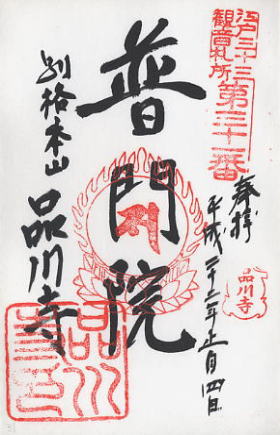 江戸三十三
観音札所
第三十一番
奉拝
平成二十二年正月四日
品川寺
普門院
別格本山
品川寺